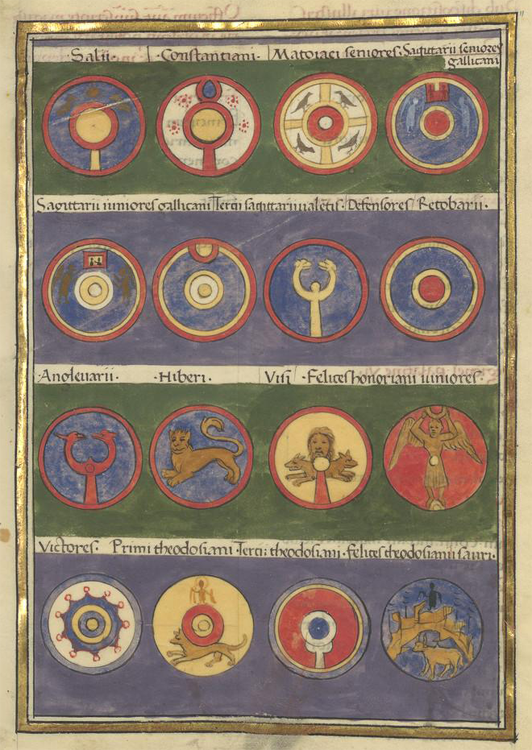 Salii. Constantiani. Matoiaci seniores. Sagittarii seniores
gallicani
Sagittarii iuniores gallicani Tercii sagittarii valetis. Defensores Retobarii.
Anglevarii. Hiberi. Visi Felices honoriani iuniores
Victores. Primi theodosiani Tercii theodosiani. felices theodosiani isauri.